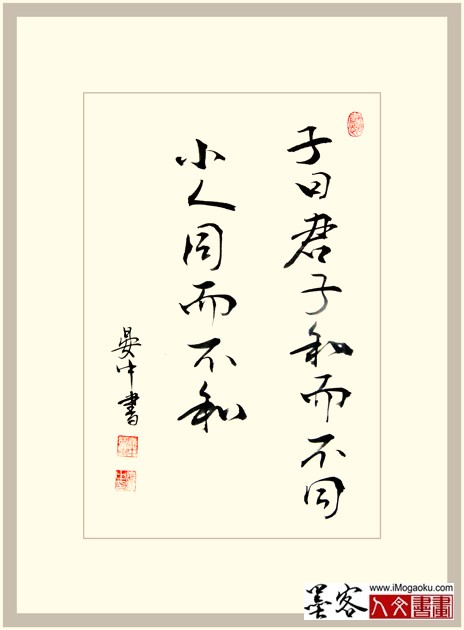 子曰君子和而不同
小人同而不和
晏中書
墨客
www.iMogaoku.com
人文書畫